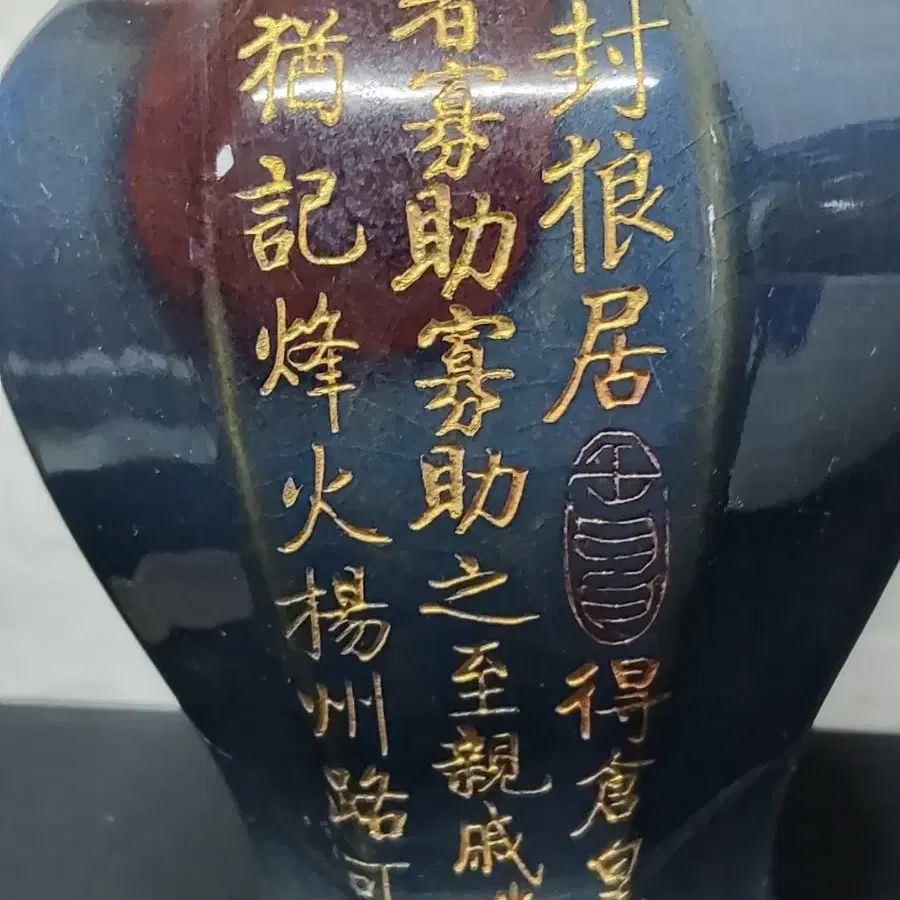 封狼居得倉皇
者寡助寡助之至親戚
猶記烽火楊州路可